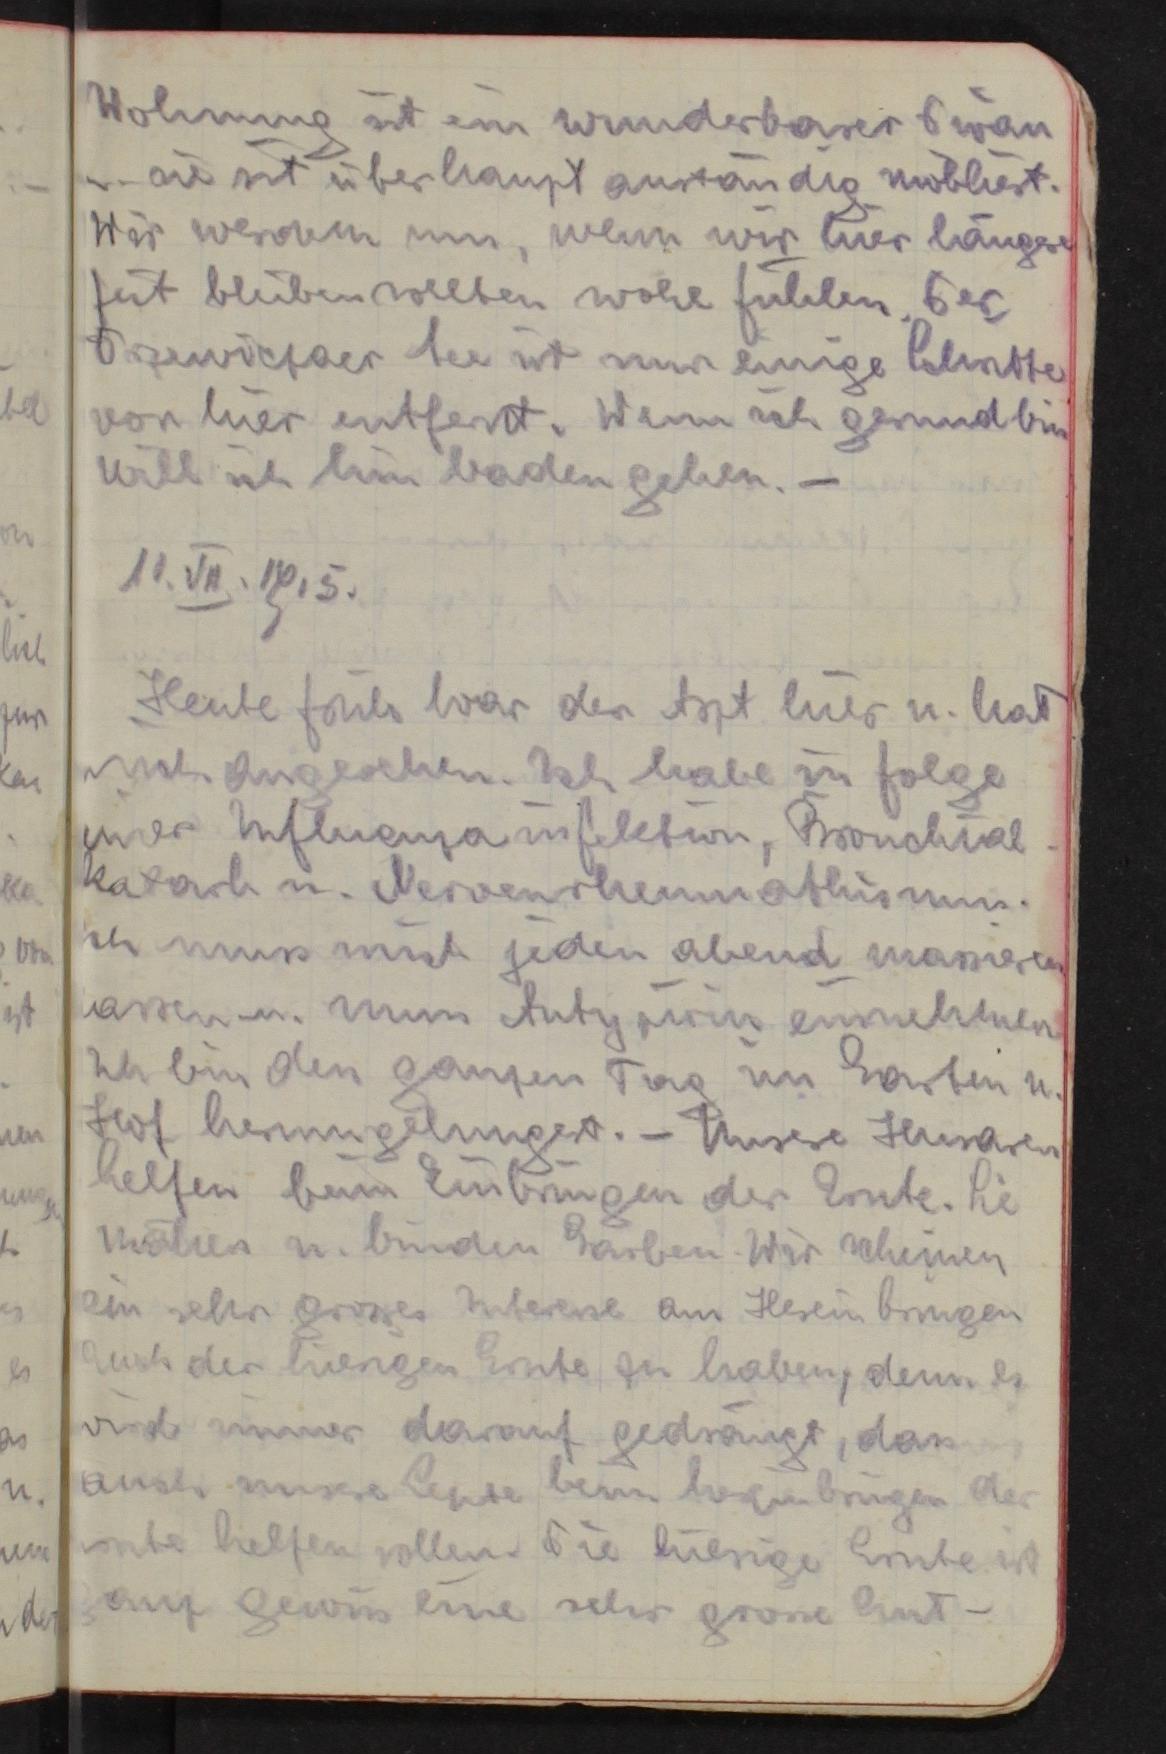 Wohnung ist ein wunderbarer Divan
u. sie ist überhaupt anständig möbliert.
Wir werden uns, wenn wir hier längere
Zeit bleiben sollten wohl fühlen. Der
See ist nur einige Schritte
von hier entfernt. Wenn ich gesund bin
will ich hin baden gehen. —
11. VII. 1915.
Heute früh war der Arzt hier u. hat
mich angesehen. Ich habe in folge
einer Influenzainfektion, Bronchial-
katarh u. Nervenrheumathismus.
Ich muss mich jeden abend massieren
lassen u. muss Antypirin einnehmen
Ich bin den ganzen Tag im Garten u.
Hof herumgelungert. — Unsere Husaren
helfen beim Einbringen der Ernte. Sie
mähen u. binden Garben. Wir scheinen
ein sehr grosses Interesse am Herein bringen
auch der hiesigen Ernte zu haben, denn es
wird immer darauf gedrängt, dass
auch unsere Leute beim herein bringen der
Ernte helfen sollen. Die hiesige Ernte ist
ganz gewiss eine sehr grosse Ent-